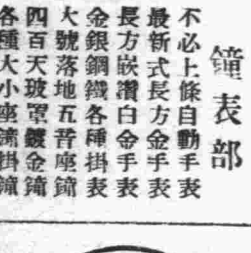 鐘表部
不必上條自動手表
最新式長方金手表
長方嵌鑽白金手表
金銀鋼鐵各種掛表
大號落地五音座鐘
四百天玻罩鍍金鐘
各種大小座鐘掛鐘